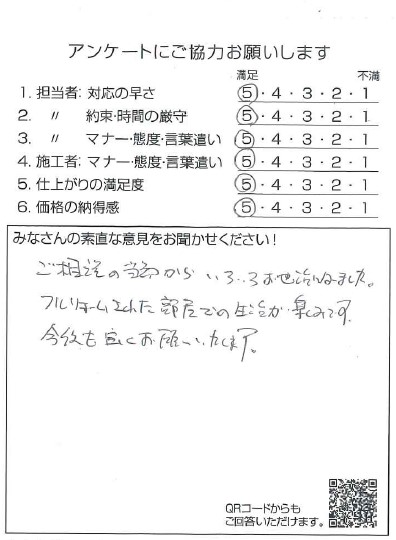 アンケートにご協力お願いします
満足 不満
1. 担当者: 対応の早さ 5・4・3・2・1
2. 〃 約束・時間の厳守 5・4・3・2・1
3. 〃 マナー・態度・言葉遣い 5・4・3・2・1
4. 施工者: マナー・態度・言葉遣い 5・4・3・2・1
5. 仕上がりの満足度 5・4・3・2・1
6. 価格の納得感 5・4・3・2・1
みなさんの素直な意見をお聞かせください!
ご相談の当初からいろいろお世話になりました。
フルリフォームされた部屋での生活が楽しみです。
今後も宜しくお願いいたします。
QRコードからも
ご回答いただけます。